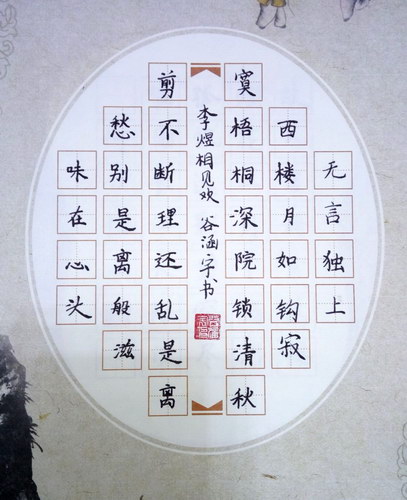 无言独上
西楼月如钩寂
寞梧桐深院锁清秋
李煜相见欢 谷涵字书
剪不断理还乱是离
愁别是离般滋
味在心头